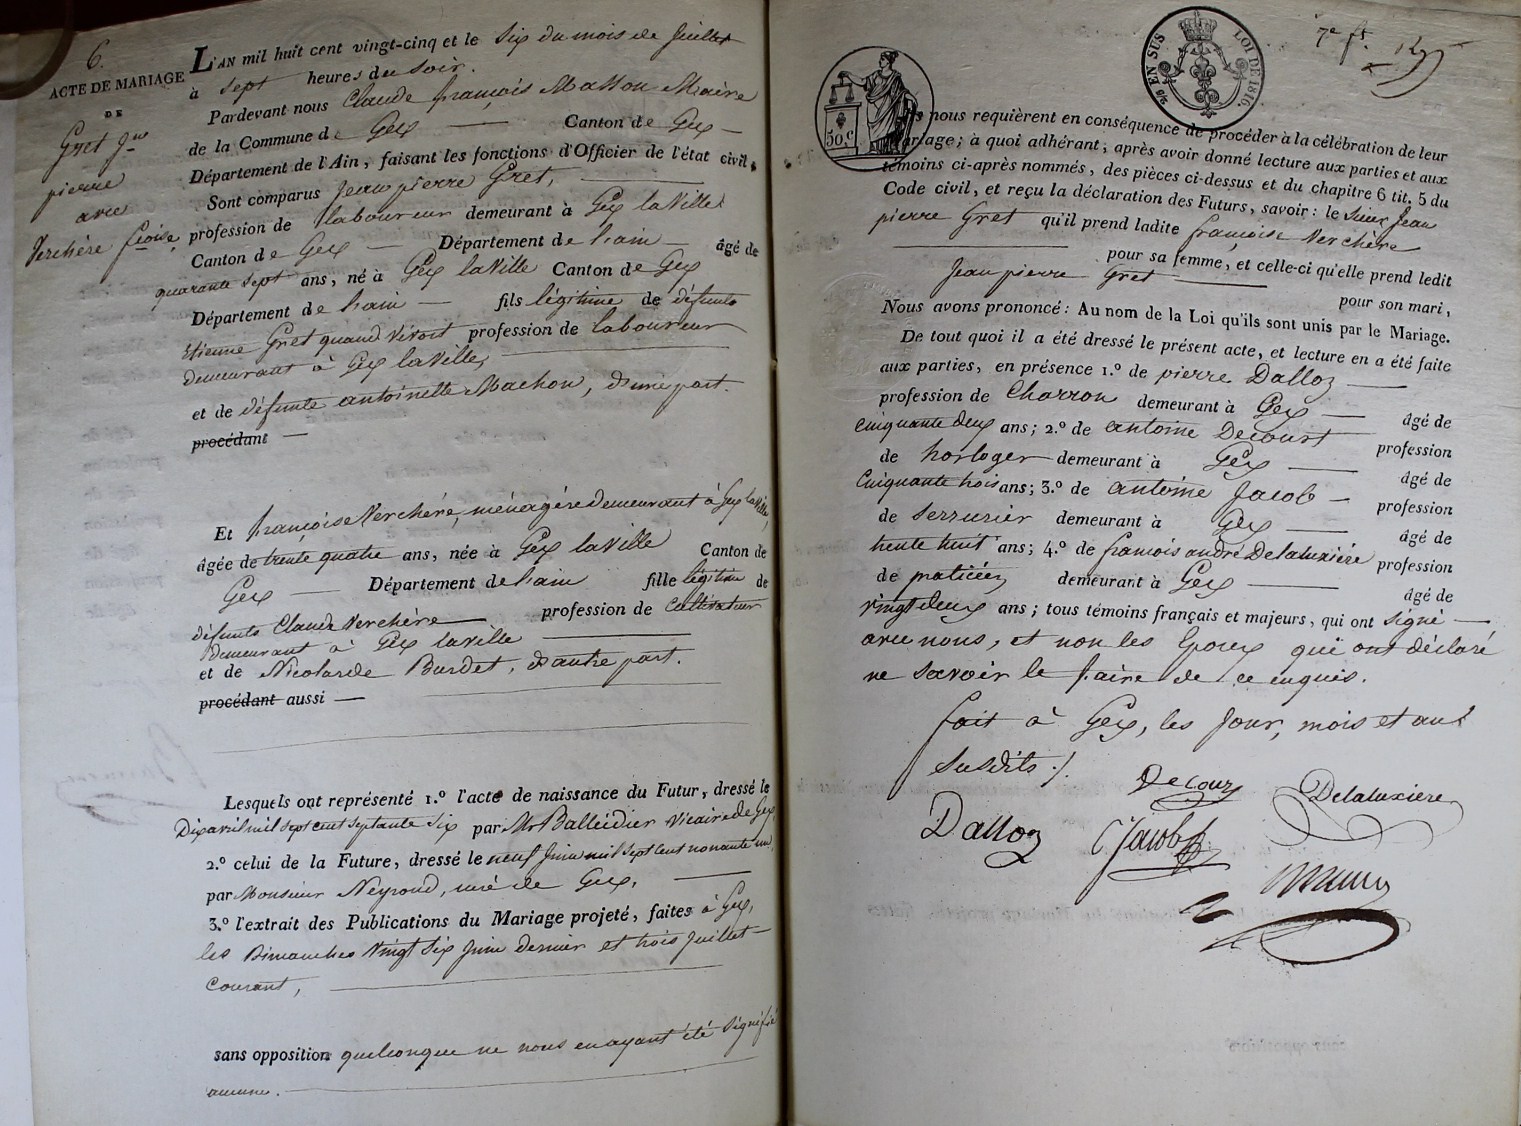 6.
ACTE DE MARIAGE
DE
Gret Jn
pierre
avec
Verchère fcoise
L'AN mil huit cent vingt-cinq et le Six du mois de Juillet
à Sept heures du Soir.
Pardevant nous Claude françois Maire
de la Commune de Gex — Canton de Gex —
Département de l'Ain, faisant les fonctions d'Officier de l'état civil,
Sont comparus Jean pierre Gret,
profession de laboureur demeurant à Gex la Ville
Canton de Gex — Département de l'ain — âgé de
quarante sept ans, né à Gex la Ville Canton de Gex
Département de l'ain — fils légitime de défunts
Etienne Gret quand Vivoit profession de laboureur
demeurant à Gex la Ville,
et de défunte antoinette Machon, d'une part.
procédant —
Et françoise Verchère, ménagère demeurant à Gex la Ville,
âgée de trente quatre ans, née à Gex la Ville Canton de
Gex — Département de l'ain fille légitime de
défunts Claude Verchère profession de Cultivateur
demeurant à Gex la Ville
et de Nicolarde Burdet, d'autre part.
procédant aussi —
Lesquels ont représenté 1.º l'acte de naissance du Futur, dressé le
Dix avril mil sept cent septante six par Mr Balleidier Vicaire de Gex,
2.º celui de la Future, dressé le neuf Juin mil sept cent nonante un,
par Monsieur Neyroud, curé de Gex,
3.º l'extrait des Publications du Mariage projeté, faites à Gex,
les Dimanches Vingt Six Juin dernier et trois Juillet
Courant,
sans opposition quelconque ne nous en ayant été signifié
aucune.
50 c.
EN SUS
LOI DE 1816.
7e ft.
nous requièrent en conséquence de procéder à la célébration de leur
mariage; à quoi adhérant, après avoir donné lecture aux parties et aux
témoins ci-après nommés, des pièces ci-dessus et du chapitre 6 tit. 5 du
Code civil, et reçu la déclaration des Futurs, savoir: le Sieur Jean
pierre Gret qu'il prend ladite françoise Verchère
pour sa femme, et celle-ci qu'elle prend ledit
Jean pierre Gret — pour son mari,
Nous avons prononcé: Au nom de la Loi qu'ils sont unis par le Mariage.
De tout quoi il a été dressé le présent acte, et lecture en a été faite
aux parties, en présence 1.º de pierre Dalloz —
profession de Charron demeurant à Gex — âgé de
Cinquante deux ans; 2.º de antoine Decourt profession
de horloger demeurant à Gex — âgé de
Cinquante trois ans; 3.º de antoine Jacob — profession
de Serrurier demeurant à Gex — âgé de
trente huit ans; 4.º de françois andré Delaluxière profession
de praticien demeurant à Gex — âgé de
vingt deux ans; tous témoins français et majeurs, qui ont signé —
avec nous, et non les Epoux qui ont déclaré
ne savoir le faire de ce enquis.
fait à Gex, les Jour, mois et an
susdits ./.
Decour
Delaluxière
Dalloz
Jacob